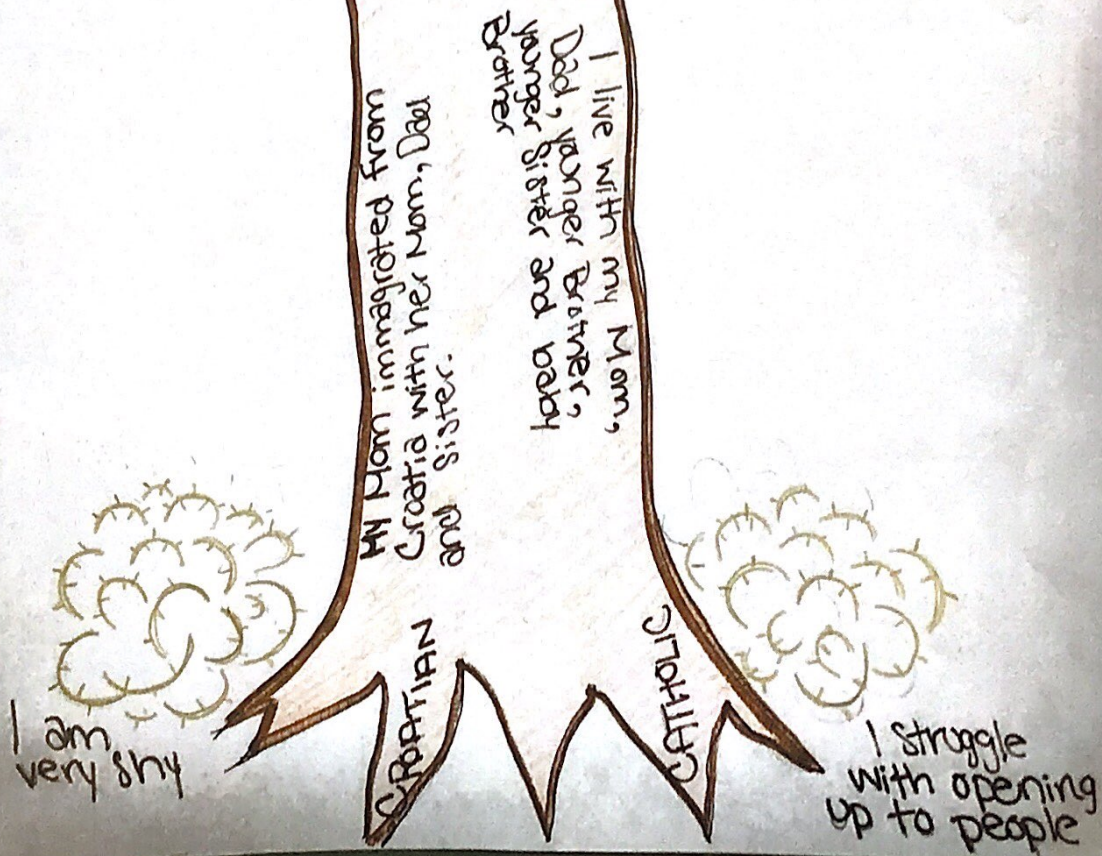 My Mom immagrated from
Croatia with her Mom, Dad
and Sister.
I live with my Mom,
Dad, younger Brother,
younger Sister and baby
Brother
CROATIAN
CATHOLIC
I am
very shy
I struggle
with opening
up to people